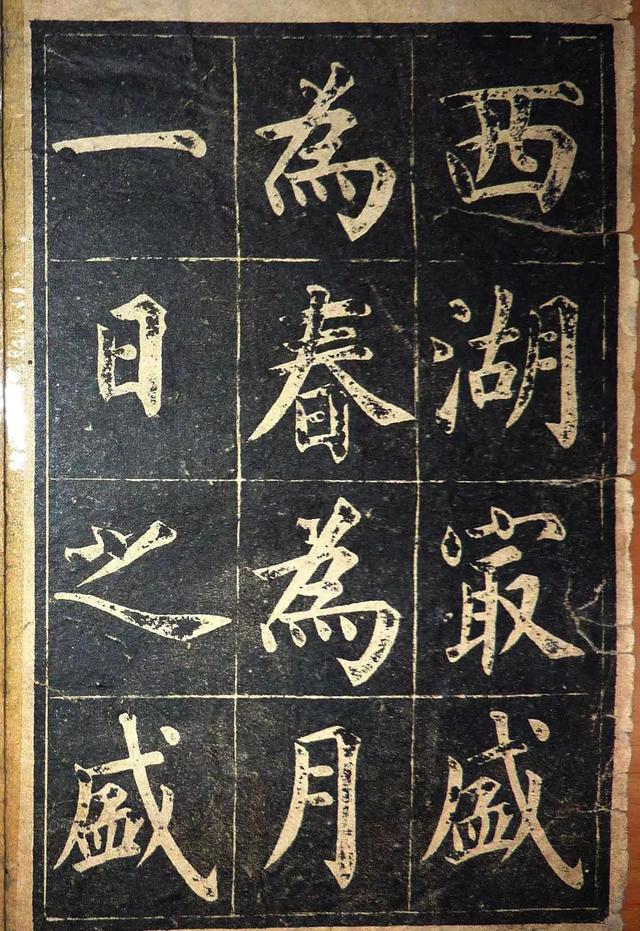 西湖㝡盛
為春為月
一日之盛